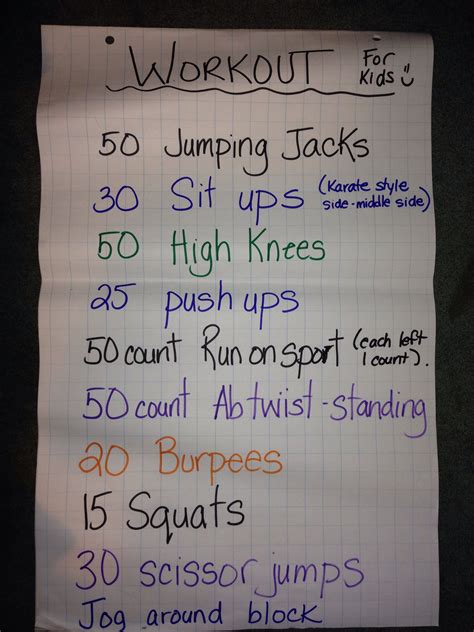 WORKOUT For Kids
50 Jumping Jacks
30 Sit ups (Karate style side-middle side)
50 High Knees
25 push ups
50 count Run on sport (each left 1 count).
50 count Ab twist-standing
20 Burpees
15 Squats
30 scissor jumps
Jog around block